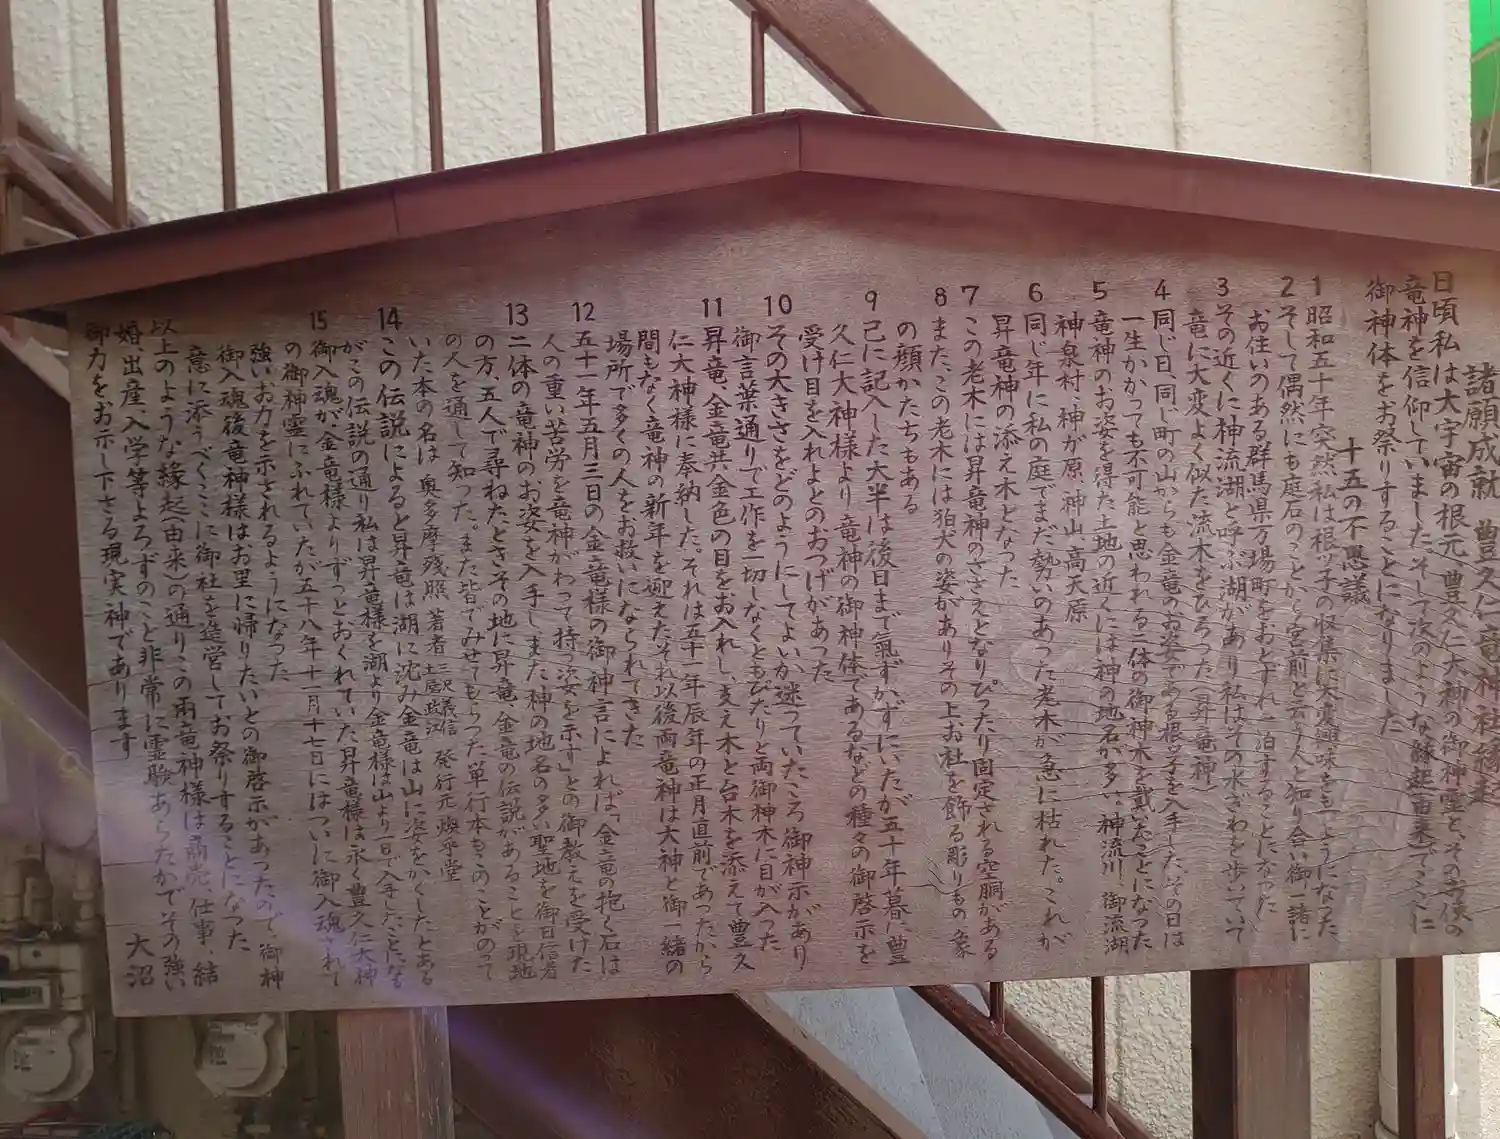 諸願成就 豊久仁竜神社縁起
日頃私は大宇宙の根元、豊久仁大神の御神霊と、その寺侠の
竜神を信仰していました。そして次のような縁起由来でここに
御神体をお祭りすることになりました
十五の不思議
1 昭和五十年突然私は根ッ子の収集に大変興味をもつようになった
2 そして偶然にも庭石のことから宮前と云う人と知り合い御一諸に
お住いのある群馬県万場町をおとずれ一泊することになった
3 その近くに神流湖と呼ぶ湖があり私はその水ぎわを歩いていて
竜に大変よく似た流木をひろった(昇竜神)
4 同じ日、同じ町の山からも金竜のお姿である根ッ子を入手した、その日は
一生かかっても不可能と思われる二体の御神木を戴いたことになった
5 竜神のお姿を得た土地の近くには神の地名が多い、神流川、御流湖
神泉村、神が原、神山、高天原
6 同じ年に私の庭でまだ勢いのあった老木が急に枯れた。これが
昇竜神の添え木となった
7 この老木には昇竜神のささえとなりぴったり固定される空胴がある
8 また、この老木には狛犬の姿がありその上お社を飾る彫りもの象
の顔かたちもある
9 己に記入した大半は後日まで氣ずかずにいたが五十年暮に豊
久仁大神様より竜神の御神体であるなどの種々の御啓示を
受け目を入れよとのおつげがあった
10 その大きさをどのようにしてよいか迷っていたころ御神示があり
御言葉通りで工作を一切しなくともぴたりと両御神木に目が入った
11 昇竜、金竜共金色の目をお入れし、支え木と台木を添えて豊久
仁大神様に奉納した。それは五十一年辰年の正月直前であったから
間もなく竜神の新年を迎えたそれ以後両竜神は大神と御一緒の
場所で多くの人をお救いになられてきた
12 五十一年五月三日の金竜様の御神言によれば「金竜の抱く石は
人の重い苦労を竜神がわって持つ姿を示す」との御教えを受けた
13 二体の竜神のお姿を入手しまた神の地名の多い聖地を御日信者
の方、五人で尋ねたときその地に昇竜、金竜の伝説があることを現地
の人を通して知った。また皆でみせてもらった単行本もこのことがのって
いた本の名は 奥多摩残照 著者 三沢義信 土屋政治 発行元 煥乎堂
14 この伝説によると昇竜は湖に沈み金竜は山に姿をかくしたとある
がこの伝説の通り私は昇竜様を湖より金竜様は山より一日で入手したことになる
15 御入魂が、金竜様よりずっとおくれていた昇竜様は永く豊久仁大神
の御神霊にふれていたが五十八年十一月十七日にはついに御入魂されて
強いお力を示されるようになった
御入魂後竜神様はお里に帰りたいとの御啓示があったので、御神
意に添うべくここに御社を造営してお祭りすることになった
以上のような縁起(由来)の通り、この両竜神様は商売、仕事、結
婚、出産、入学等よろずのこと非常に霊験あらたかでその強い
御力をお示し下さる現実神であります 大沼